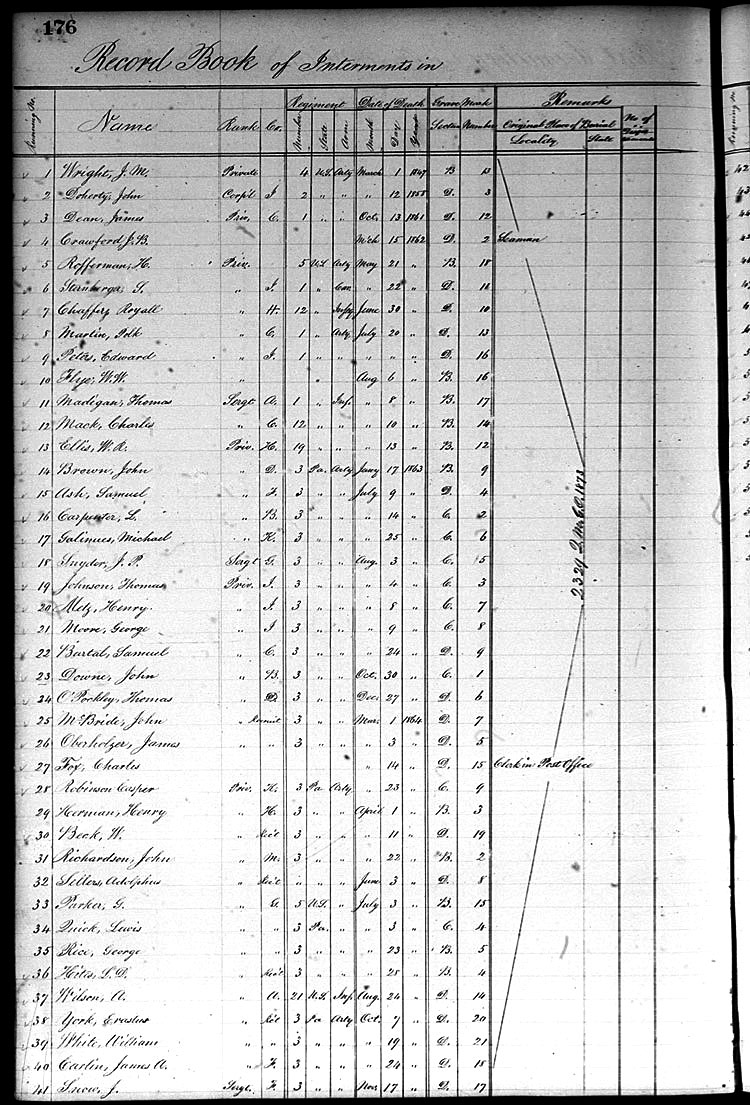 176
Record Book of Interments in
Regiment Date of Death Grave Mark Remarks
Name Rank Co. Number State Arm Month Day Year Section Number Original Place of Burial No. of
Locality State
1 Wright, J. M. Private 4 U.S. Arty March 1 1847 B. 13
2 Doherty, John Corp'l I. 2 " " " 12 1858 D. 3
3 Dean, James Priv. C. 1 " " Oct. 13 1861 D. 12
4 Crawford J. B. Mch 15 1862 D. 2 Seaman
5 Rofferman, H. Priv. 5 U.S. Arty May 21 " B. 18
6 " I. 1 " " 22 " D.
7 Chaffery, Royall " H. 12 " Infty June 30 " D. 10
8 Martin, Polk " C. 1 " Arty July 20 " D. 13
9 Peters, Edward " I. 1 " " " " " D. 16
10 Flye, W. W. " " Aug 6 " B. 16
11 Madigan, Thomas Sergt. A. 1 " Inf. " 8 " B. 17
12 Mack, Charles " C. 12 " " " 10 " B. 14
13 Ellis, W. R. Priv. H. 19 " " " 13 " B. 12
14 Brown, John " D. 3 Pa. Arty Jany 17 1863 B. 9
15 Ash, Samuel " F. 3 " " July 9 " D. 4
16 Carpenter, L. " B. 3 " " " 14 " C. 2
17 Galinues, Michael " K. 3 " " " 25 " C. 6
18 Snyder, J. P. Sergt G. 3 " " Aug. 3 " C. 5
19 Johnson, Thomas Priv. I. 3 " " " 4 " C. 3
20 Metz, Henry " I. 3 " " " 8 " C. 7
21 Moore, George " I 3 " " " 9 " C. 8
22 Bartal, Samuel " C. 3 " " " 24 " D. 9
23 Downe, John " B. 3 " " Oct. 30 " C. 1
24 O'Pockley, Thomas " D 3 " " Dec. 27 " D. 6
25 McBride, John " Recruit 3 " " Mar. 1 1864 D. 7
26 Oberholzer, James " " 3 " " " 3 " D. 5
27 Fox, Charles " 14 " D. 15 Clerk in Post Office
28 Robinson Casper Priv. K. 3 Pa Arty " 23 " C. 9
29 Herman, Henry " H. 3 " " April 1 " B. 3
30 Beck, W. " Rec't 3 " " " 11 " D. 19
31 Richardson, John " M. 3 " " " 22 " B. 2
32 Sellers, Adolphus " Rec't " " " June 3 " D. 8
33 Parker, G. " G 5 U.S. " July 3 " B. 15
34 Quick, Lewis " " " Pa. " " 3 " C. 4
35 Rice, George " " 3 " " " 23 " B. 5
36 Hites, S. D. " Rec't 3 " " " 28 " B. 4
37 Wilson, A. " A. 21 U.S. Inf. Aug. 24 " D. 14
38 York, Erastus " Rec't 3 Pa Arty Oct. 7 " D. 20
39 White, William " " 3 " " " 19 " D. 21
40 Carlin, James A. " F. 3 " " " 24 " D. 18
41 Snow, J. Sergt. F. 3 " " Nov. 17 " D. 17